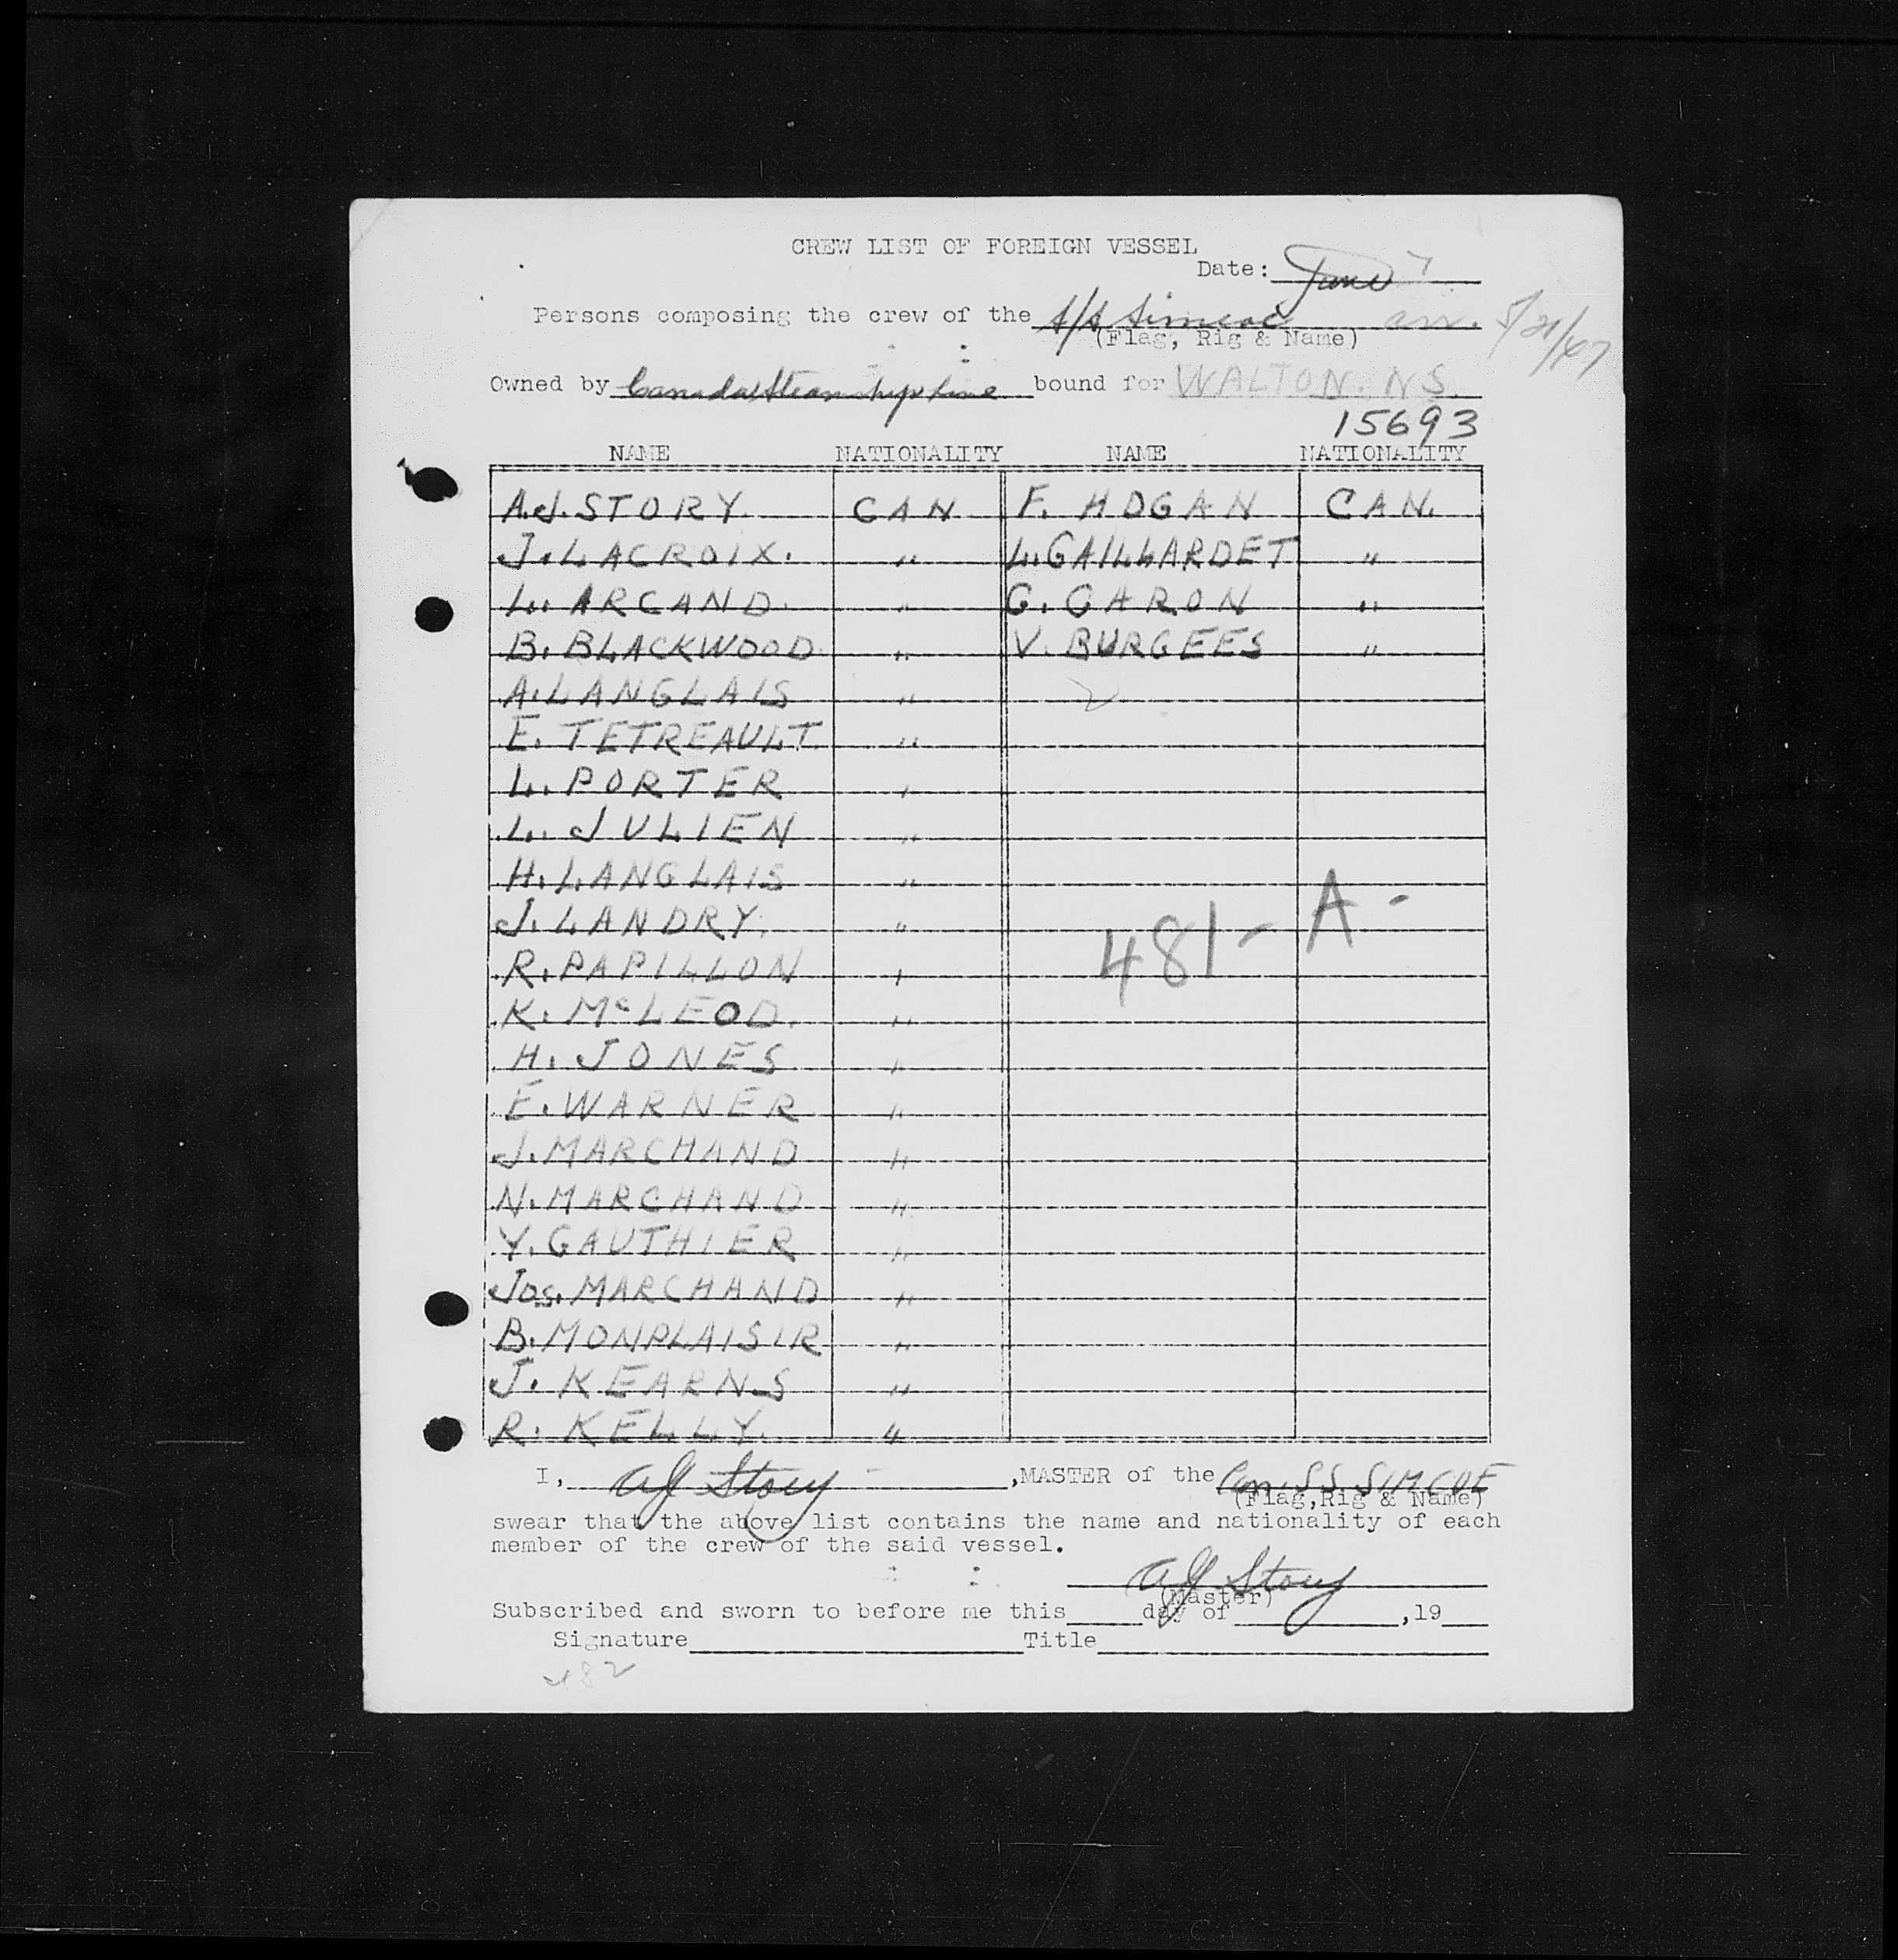 CREW LIST OF FOREIGN VESSEL
Date: June 7
Persons composing the crew of the S/S Simcoe arr.
(Flag, Rig & Name)
Owned by Canada Steamships Line bound for WALTON. NS.
15693
NAME NATIONALITY NAME NATIONALITY
A.J. STORY. CAN F. HOGAN CAN.
J. LACROIX. " L. GAILLARDET "
L. ARCAND. " G. GARON "
B. BLACKWOOD. " V. BURGEES "
A. LANGLAIS "
E. TETREAULT. "
L. PORTER "
L. JULIEN "
H. LANGLAIS "
J. LANDRY. "
481- A -
R. PAPILLON "
K. McLEOD. "
H. JONES "
E. WARNER "
J. MARCHAND "
N. MARCHAND "
Y. GAUTHIER "
Jos. MARCHAND "
B. MONPLAISIR "
J. KEARNS "
R. KELLY. "
I, AJ Story ,MASTER of the Can. SS SIMCOE
(Flag,Rig & Name)
swear that the above list contains the name and nationality of each
member of the crew of the said vessel.
AJ Story
(Master)
Subscribed and sworn to before me this day of ,19
Signature Title
482